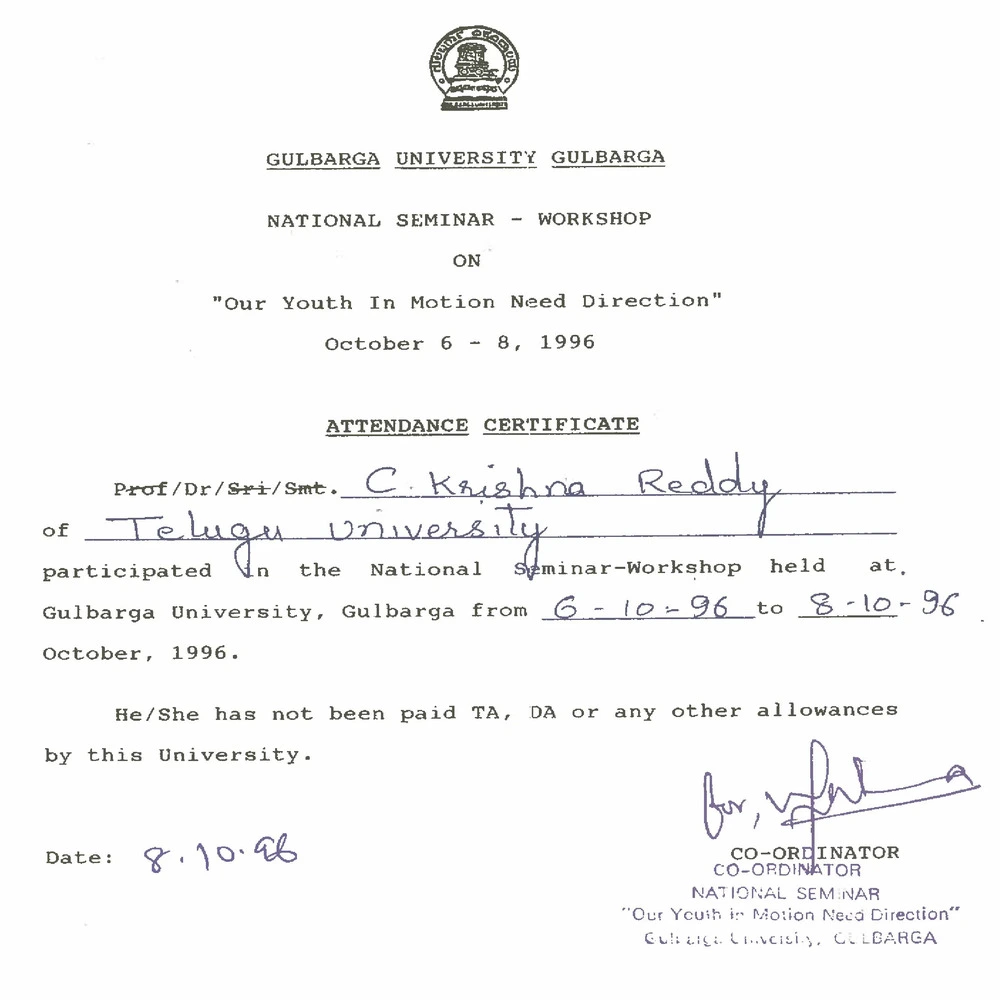 GULBARGA UNIVERSITY GULBARGA
NATIONAL SEMINAR - WORKSHOP
ON
"Our Youth In Motion Need Direction"
October 6 - 8, 1996
ATTENDANCE CERTIFICATE
Prof/Dr/Sri/Smt. C. Krishna Reddy
of Telugu University
participated in the National Seminar-Workshop held at.
Gulbarga University, Gulbarga from 6-10-96 to 8-10-96
October, 1996.
He/She has not been paid TA, DA or any other allowances
by this University.
for,
Date: 8.10.96
CO-ORDINATOR
CO-ORDINATOR
NATIONAL SEMINAR
"Our Youth in Motion Need Direction"
Gulbarga University, GULBARGA